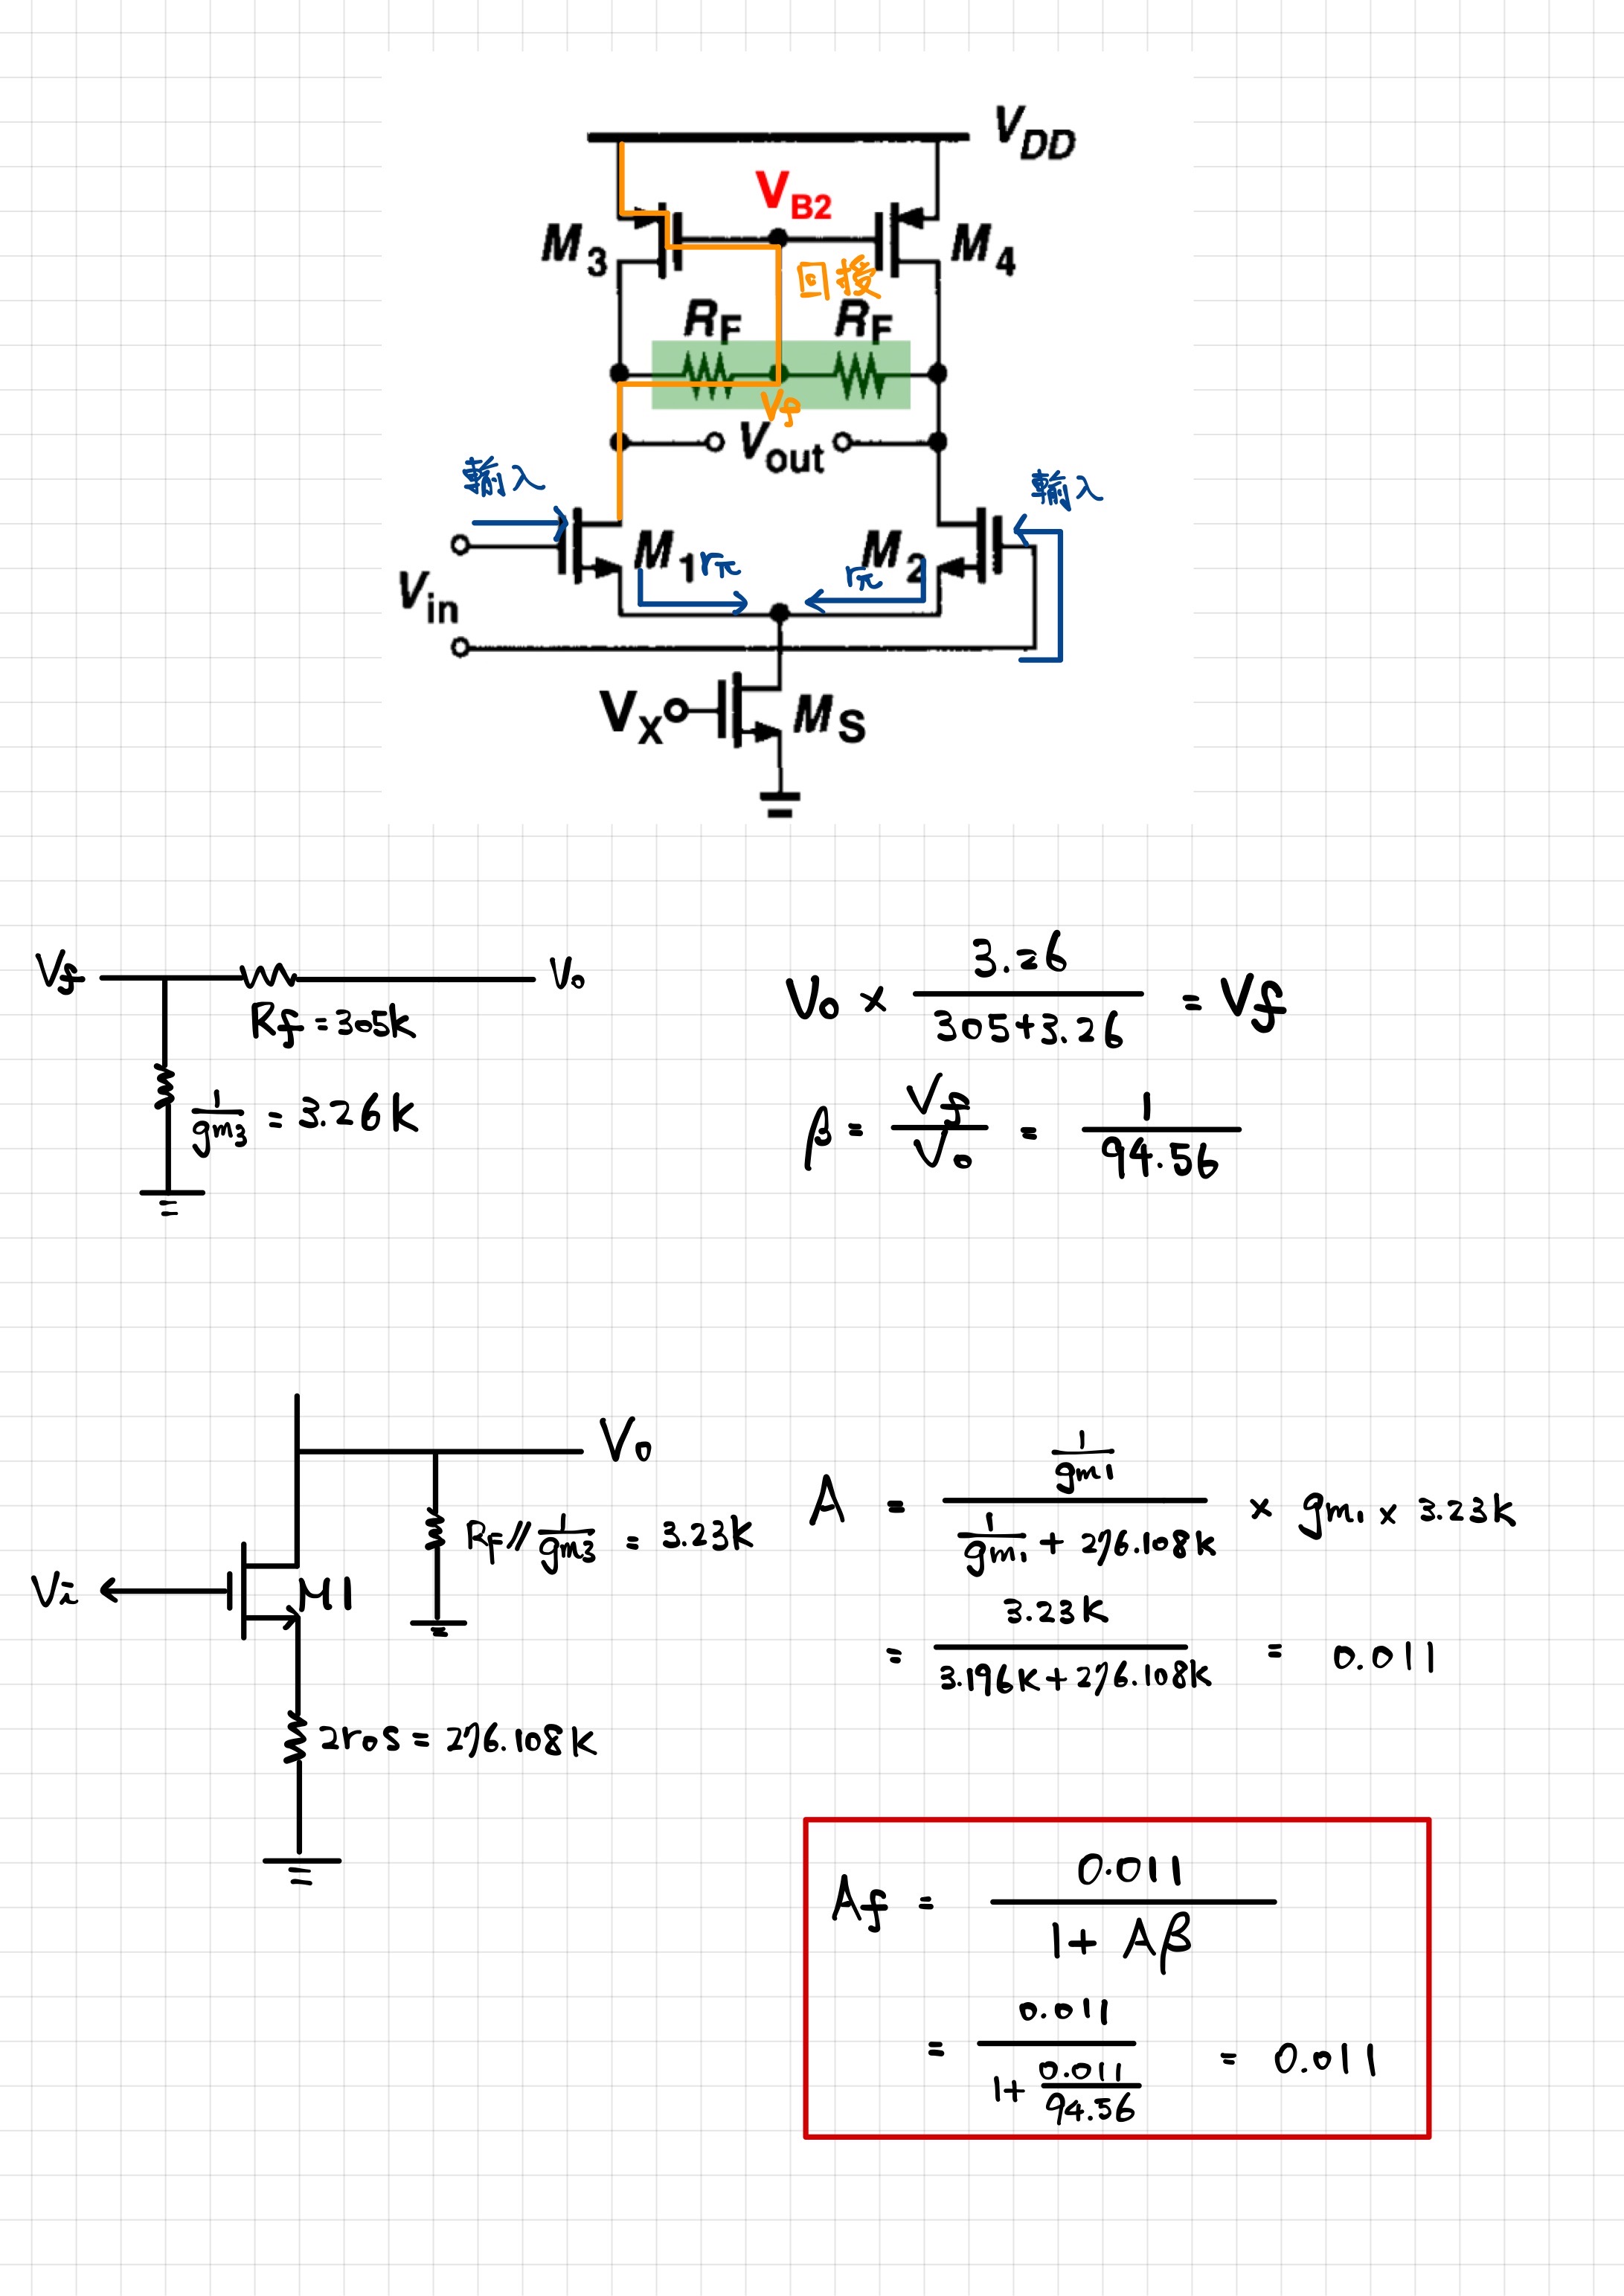 V_DD
V_B2
M_3 M_4
回授
R_F R_F
V_f
V_out
輸入 輸入
M_1 rπ rπ M_2
V_in
V_X M_S
V_f V_o
R_f = 305k
1/g_m3 = 3.26k
V_o × 3.26/(305+3.26) = V_f
β = V_f/V_o = 1/94.56
V_o
R_f // 1/g_m3 = 3.23k
V_i M1
2ros = 276.108k
A = (1/g_m1)/(1/g_m1 + 276.108k) × g_m1 × 3.23k
= 3.23k/(3.196k+276.108k) = 0.011
A_f = 0.011/(1+Aβ)
= 0.011/(1+0.011/94.56) = 0.011